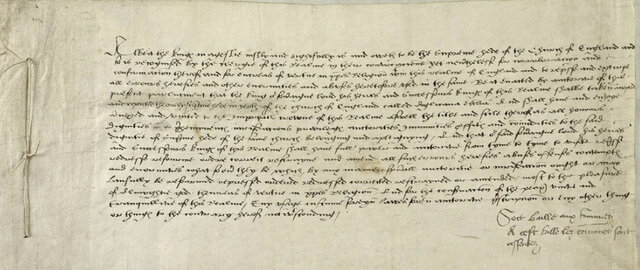 Albeit the kings mageste iustly and rightfully is and oweth to be the supreme hede of the Churche of England and
so is recognised by the clergie of this Realme in their convocations yet nevertheless for corroboration and
confirmation therof and for encrease of vertue in xpes Religion within this Realme of England and to represse and extirpe
all errours heresies and other enormities and abuses heretofore used in the same Be it enacted by auctorite of this
present parliament that the king our soveraigne lord his heires and successours kings of this Realme shalbe taken accepted
and reputed the onely supreme hede in erth of the churche of England called Anglicana ecclesia And shall have and enioye
annexed and united to the imperiall crowne of this Realme aswell the title and stile therof as all honours
dignities preeminences iurisdictions privileges auctorites immunities profitts and commodities to the said
dignitie of supreme hede of the same churche belonging and apperteyning And that our said soveraigne lord his heires
and successours kings of this Realme shall have full power and auctorite from tyme to tyme to visite represse
redresse reforme ordre correct restrayne and amend all such errours heresies abuses offences contempts
and enormites what so ever they be which by any maner spirituall auctorite or iurisdiction ought or may
lawfully be reformed repressed ordered redressed corrected restrayned or amended most to the pleasure
of Almightie god thencrease of vertue in xpes Religion And for the conservation of the peax unite and
tranquillite of this Realme Any usage custume foreyn lawes foreyn auctorite prescription or eny other thing
or things to the contrary herof notwithstonding
Soit baille aux communes
A cest bille les communes sont
assentez